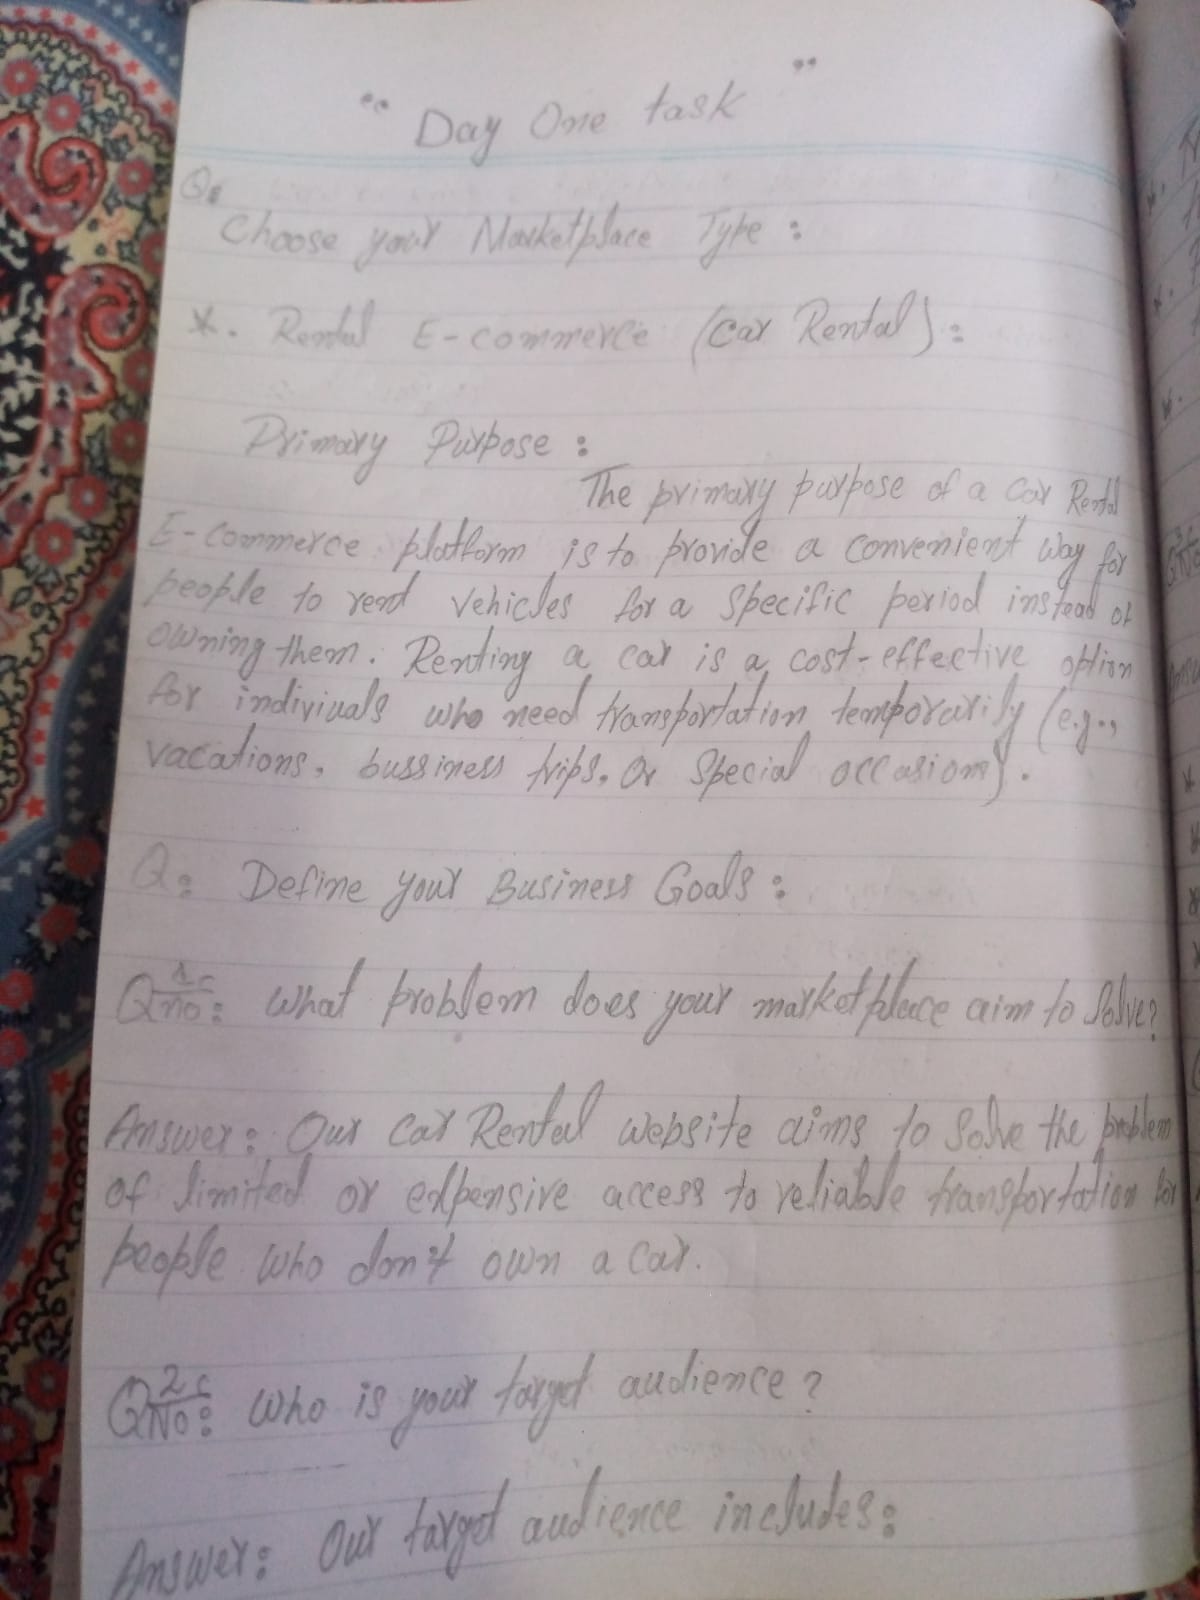 "Day One task"
Q:
Choose your Marketplace Type :
*. Rental E-commerce (Car Rental) :
Primary Purpose :
The primary purpose of a Car Rental
E-commerce platform is to provide a convenient way for
people to rent vehicles for a specific period instead of
owning them. Renting a car is a cost-effective option
for indiviuals who need transportation temporarily (e.g.,
vacations, bussiness trips, Or Special occasions).
Q: Define your Business Goals :
Q 1 no: What problem does your marketplace aim to Solve?
Answer: Our Car Rental website aims to Solve the problem
of limited or expensive access to reliable transportation for
people who don't own a Car.
Q 2 No: Who is your target audience ?
Answer: Our target audience includes: